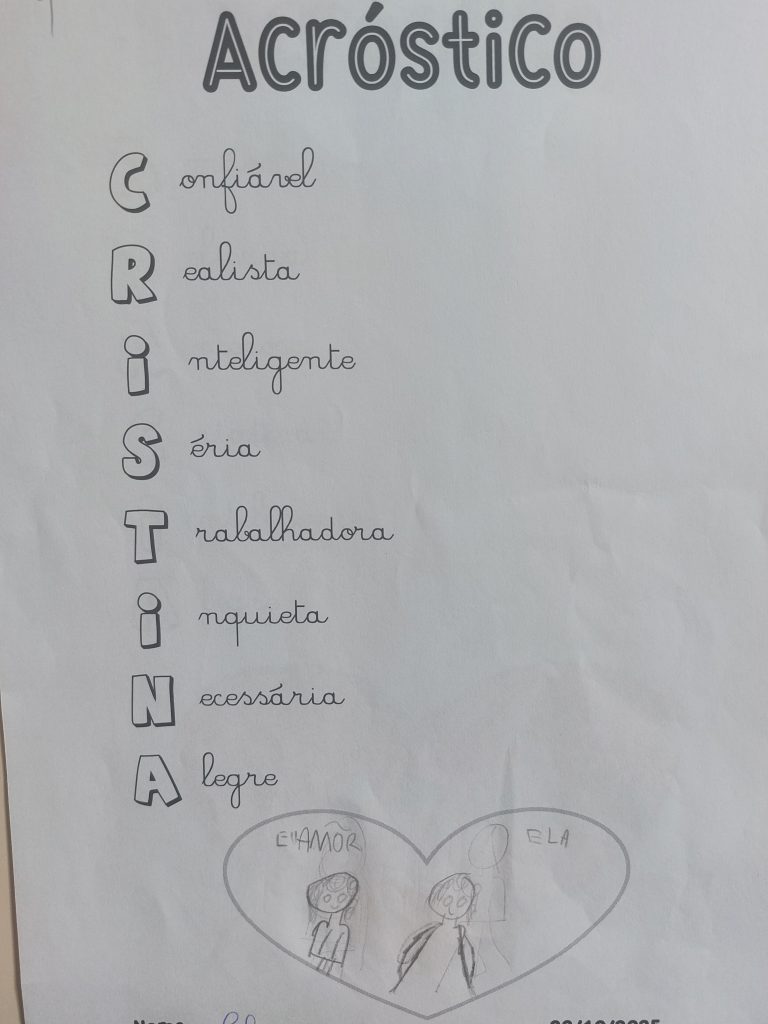 Acróstico
Confiável
Realista
inteligente
Séria
Trabalhadora
inquieta
Necessária
Alegre
ELA